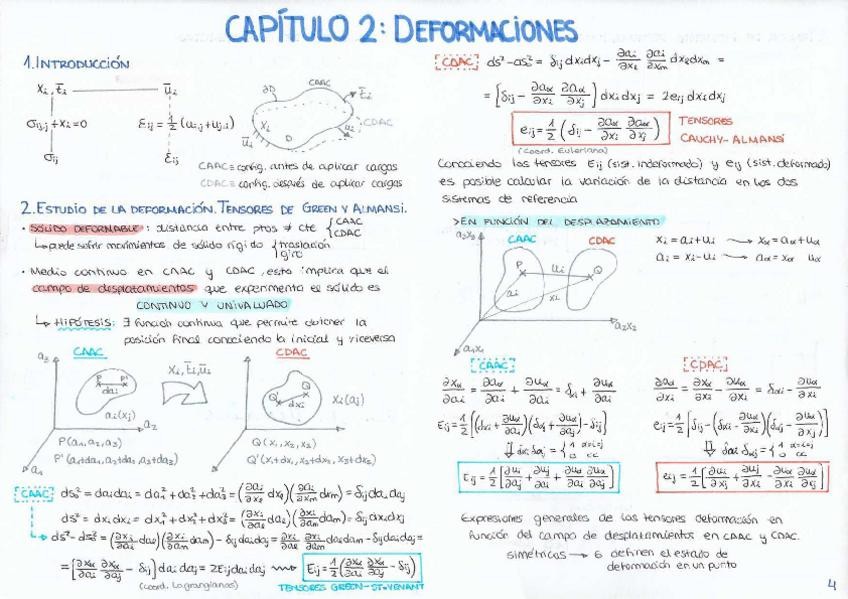 CAPÍTULO 2: DEFORMACIONES
1. INTRODUCCIÓN
Xi, t̄i ūi
σij,j + Xi = 0 Eij = 1/2 (ui,j + uj,i)
σij Eij
CAAC
∂D
t̄i
CDAC
Xi
D
ūi
ui
CAAC ≡ config. antes de aplicar cargas
CDAC ≡ config. después de aplicar cargas
2. ESTUDIO DE LA DEFORMACIÓN. TENSORES DE GREEN Y ALMANSI.
• SÓLIDO DEFORMABLE: distancia entre ptos ≠ cte { CAAC
CDAC
↳ puede sufrir movimientos de sólido rígido { traslación
giro
• Medio continuo en CAAC y CDAC, esto implica que el
campo de desplazamientos que experimenta el sólido es
CONTINUO Y UNIVALUADO
↳ HIPÓTESIS: ∃ función continua que permite obtener la
posición final conociendo la inicial y viceversa
CAAC CDAC
a3
P P'
dai
ai(xj)
a2
a1
Xi, t̄i, ūi
Q Q'
dxi
xi(aj)
P(a1, a2, a3) Q(x1, x2, x3)
P'(a1+da1, a2+da2, a3+da3) Q'(x1+dx1, x2+dx2, x3+dx3)
CAAC ds₀² = dai dai = da1² + da2² + da3² =
ds² = dxi dxi = dx1² + dx2² + dx3² =
ds² - ds₀² = (∂xi/∂al dal)(∂xi/∂am dam) - δij dai daj =
= [∂xα/∂ai ∂xα/∂aj - δij] dai daj = 2Eij dai daj ⟿ Eij = 1/2 (∂xα/∂ai ∂xα/∂aj - δij)
(coord. Lagrangiana)
TENSORES GREEN-ST. VENANT
CDAC ds² - ds₀² = δij dxi dxj - ∂ai/∂xl ∂ai/∂xm dxl dxm =
= [δij - ∂aα/∂xi ∂aα/∂xj] dxi dxj = 2eij dxi dxj
eij = 1/2 (δij - ∂aα/∂xi ∂aα/∂xj) TENSORES
CAUCHY-ALMANSI
(coord. Euleriana)
Conociendo los tensores Eij (sist. indeformado) y eij (sist. deformado)
es posible calcular la variación de la distancia en los dos
sistemas de referencia
> EN FUNCIÓN DEL DESPLAZAMIENTO
a3x3
CAAC CDAC
P ui Q
ai xi
a2x2
a1x1
xi = ai + ui → xα = aα + uα
ai = xi - ui → aα = xα uα
CAAC CDAC
∂xα/∂ai = ∂aα/∂ai + ∂uα/∂ai = δαi + ∂uα/∂ai
∂aα/∂xi = ∂xα/∂xi - ∂uα/∂xi = δαi - ∂uα/∂xi
Eij = 1/2 [(δαi + ∂uα/∂ai)(δαj + ∂uα/∂aj) - δij]
eij = 1/2 [δij - (δαi - ∂uα/∂xi)(δαj - ∂uα/∂xj)]
Eij = 1/2 [∂ui/∂aj + ∂uj/∂ai + ∂uα/∂ai ∂uα/∂aj]
Expresiones generales de los tensores deformación en
función del campo de desplazamientos en CAAC y CDAC.
simétricos → 6 definen el estado de
deformación en un punto
4